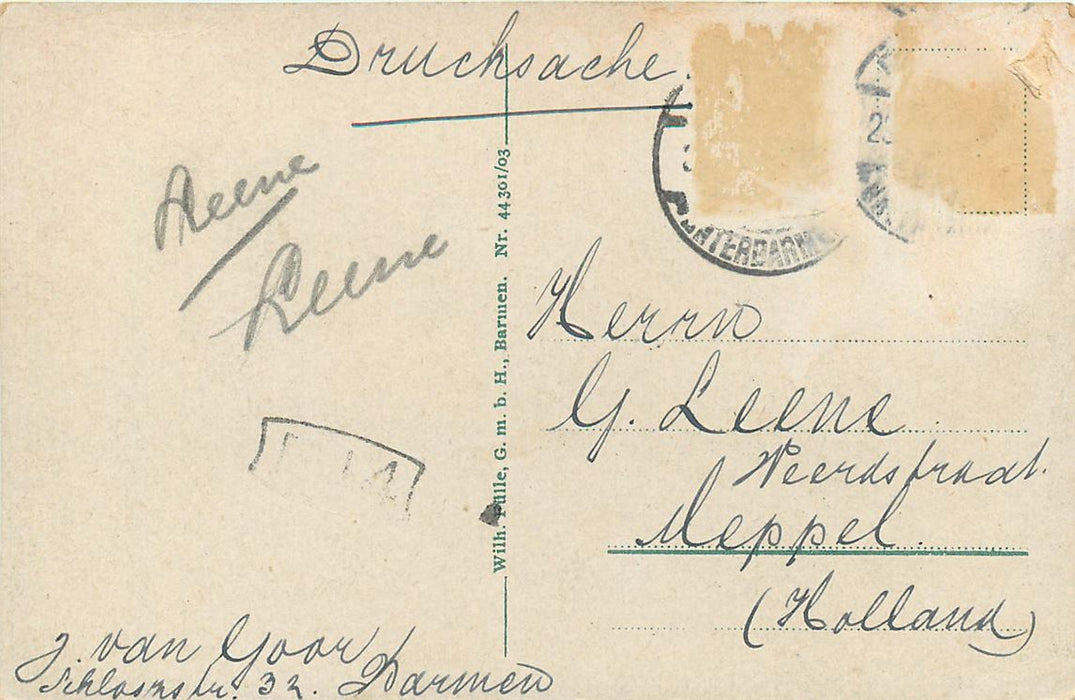 Drucksache.
Leene
Leene
Wilh. Fülle, G. m. b. H., Barmen. Nr. 44301/03
UNTERBARMEN
Herrn
G. Leene
Weerdstraat.
Meppel
(Holland)
J. van Goor
Schlossstr. 32. Barmen